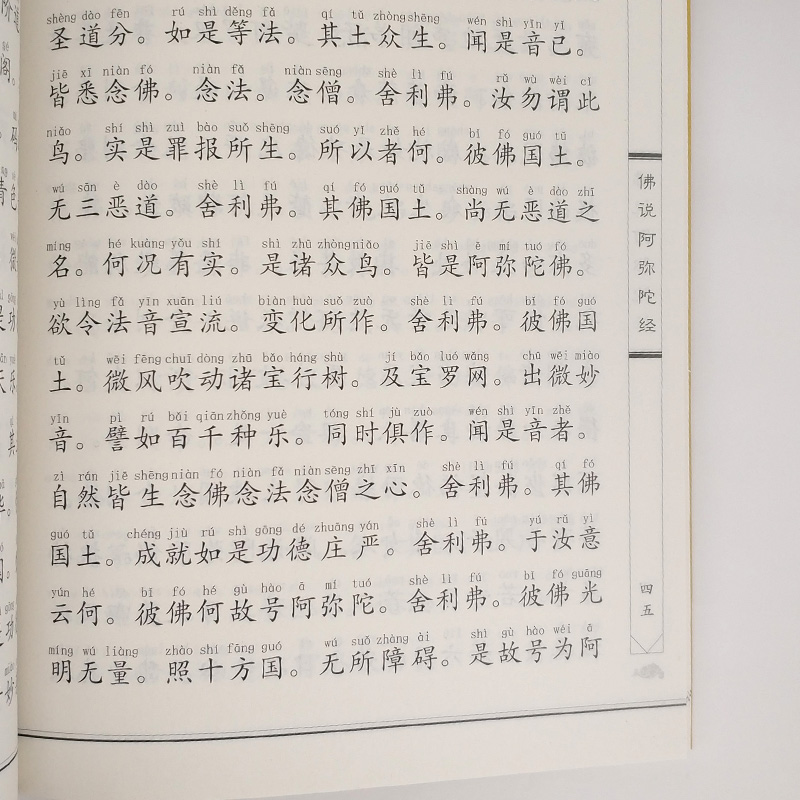 shèng dào fēn rú shì děng fǎ qí tǔ zhòng shēng wén shì yīn yǐ
圣道分。如是等法。其土众生。闻是音已。
jiē xī niàn fó niàn fǎ niàn sēng shè lì fú rǔ wù wèi cǐ
皆悉念佛。念法。念僧。舍利弗。汝勿谓此
niǎo shí shì zuì bào suǒ shēng suǒ yǐ zhě hé bǐ fó guó tǔ
鸟。实是罪报所生。所以者何。彼佛国土。
wú sān è dào shè lì fú qí fó guó tǔ shàng wú è dào zhī
无三恶道。舍利弗。其佛国土。尚无恶道之
míng hé kuàng yǒu shí shì zhū zhòng niǎo jiē shì ē mí tuó fó
名。何况有实。是诸众鸟。皆是阿弥陀佛。
yù lìng fǎ yīn xuān liú biàn huà suǒ zuò shè lì fú bǐ fó guó
欲令法音宣流。变化所作。舍利弗。彼佛国
tǔ wēi fēng chuī dòng zhū bǎo háng shù jí bǎo luó wǎng chū wēi miào
土。微风吹动诸宝行树。及宝罗网。出微妙
yīn pì rú bǎi qiān zhǒng yuè tóng shí jù zuò wén shì yīn zhě
音。譬如百千种乐。同时俱作。闻是音者。
zì rán jiē shēng niàn fó niàn fǎ niàn sēng zhī xīn shè lì fú qí fó
自然皆生念佛念法念僧之心。舍利弗。其佛
guó tǔ chéng jiù rú shì gōng dé zhuāng yán shè lì fú yú rǔ yì
国土。成就如是功德庄严。舍利弗。于汝意
yún hé bǐ fó hé gù hào ā mí tuó shè lì fú bǐ fó guāng
云何。彼佛何故号阿弥陀。舍利弗。彼佛光
míng wú liàng zhào shí fāng guó wú suǒ zhàng ài shì gù hào wéi ā
明无量。照十方国。无所障碍。是故号为阿
佛说阿弥陀经
四五